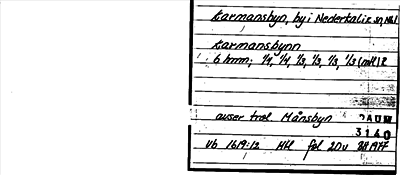 Karmansbyn, by i Nederkalix sn, Nbl
Karmansbynn
6 hmm; 1/4, 1/4, 1/3, 1/3, 1/3, 1/3 (mtl) R
avser trol. Månsbyn DAUM
3140
Vb 1619:12 HH fol 20v